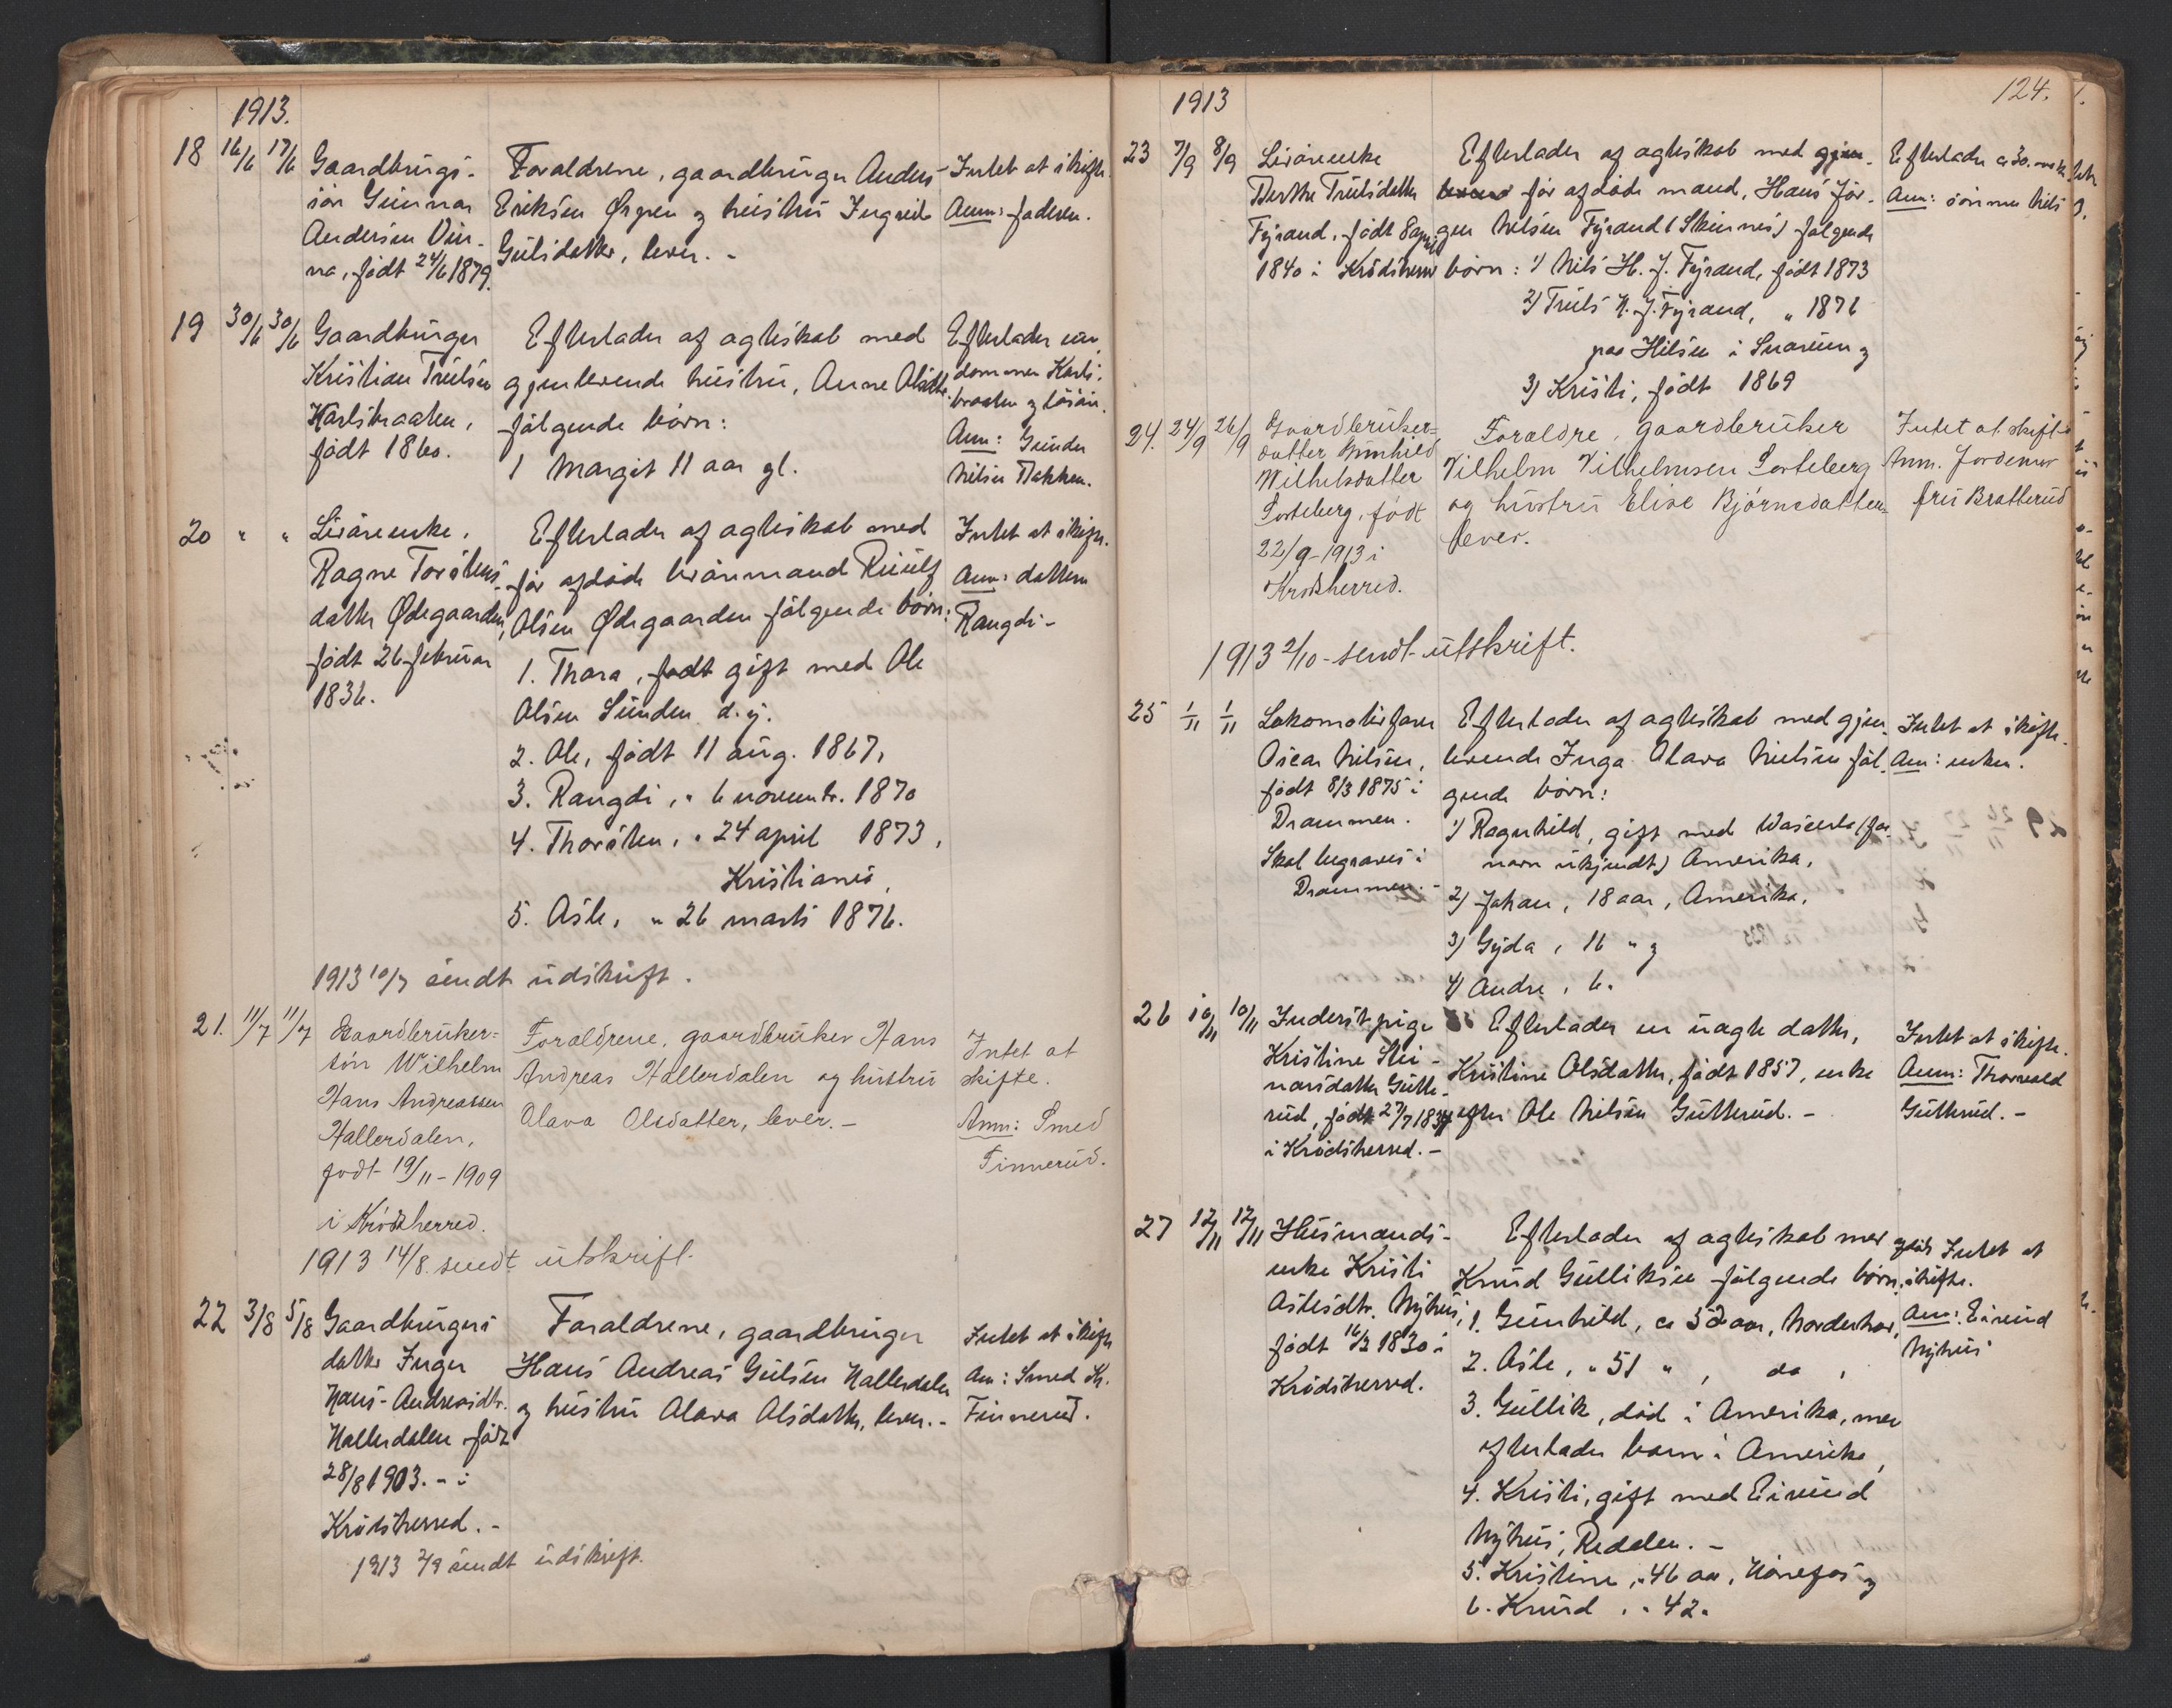 1913.
18 16/6 17/6 Gaardbrugs-
søn Gunnar
Andersen Vin-
na, født 24/6 1879.
Forældrene, gaardbruger Anders
Eriksen Ørgen og hustru Ingrid
Gulsdatter, lever. -
Intet at skifte.
Anm: faderen.
19 30/6 30/6 Gaardbruger
Kristian Trulsen
Karlsbraaten,
født 1860.
Efterlader af ægteskab med
gjenlevende hustru, Anne Olsdtr.
følgende børn:
1 Margit 11 aar gl.
Efterlader eien-
dommen Karls-
braaten og løsøre.
Anm: Gunder
Nilsen Bakken.
20 " " Livøreenke,
Ragne Torstens-
datter Ødegaarden,
født 26 februar
1836.
Efterlader af ægteskab med
før afdøde livøremand Ruulf
Olsen Ødegaarden følgende børn:
1. Thora, født gift med Ole
Olsen Sunden d.y.
2. Ole, født 11 aug. 1867,
3. Rangdi, " 6 novembr. 1870
4. Thorsten, " 24 april 1873,
Kristiania,
5. Asle, " 26 marts 1876.
Intet at skifte.
Anm: datteren
Rangdi -
1913 10/7 sendt udskrift.
21. 11/7 11/7 Gaardbruker-
søn Wilhelm
Hans Andreassen
Hallerdalen,
født 19/11 - 1909
i Krødsherred.
Forældrene, gaardbruker Hans
Andreas Hallerdalen og hustru
Olava Olsdatter, lever. -
Intet at
skifte.
Anm: Smed
Finnerud.
1913 14/8. sendt utskrift.
22 3/8 5/8 Gaardbrugers
datter Inger
Hans-Andreasdtr.
Hallerdalen født
28/8 1903. - i
Krødsherred. -
Forældrene, gaardbruger
Hans Andreas Gulsen Hallerdalen
og hustru Olava Olsdatter, lever. -
Intet at skifte
Anm: Smed K.
Finnerud.
1913 2/9 sendt udskrift.
124.
1913
23 7/9 8/9 Livøreenke
Berthe Trulsdatter
Fyrand, født 8 april
1840 i Krødsherred
Efterlader af ægteskab med gjen-
før afdøde mand, Hans Jør-
gen Nilsen Fyrand (Skinnes) følgende
børn: 1) Nils H. J. Fyrand, født 1873
2) Truls H. J. Fyrand, " 1876
paa Hilsen i Snarum og
3) Kristi, født 1869
Efterlader ca 30.
Anm: sønnen Nils
24. 24/9 26/9 Gaardbruker-
datter Gunhild
Wilhelsdatter
Sorteberg, født
22/9 - 1913 i
Krødsherred.
Forældre, gaardbruker
Vilhelm Vilhelmsen Sorteberg
og hustru Elise Bjørnsdatter
lever.
Intet at skifte
Anm. Jordemor
fru Bratterud
1913 2/10 - sendt utskrift.
25 1/11 1/11 Lokomotivfører
Oscar Nilsen,
født 8/3 1875 i
Drammen.
Skal begraves i
Drammen. -
Efterlader af ægteskab med gjen-
levende Inga Olava Nielsen føl-
gende børn:
1) Ragnhild, gift med (for-
navn ukjendt) Amerika,
2) Johan, 18 aar, Amerika,
3) Gyda, 16 " og
4) Andre, 6 "
Intet at skifte.
Anm: enken.
26 10/11 10/11 Inderst pige
Kristine Stei-
narsdatter Gutte-
rud, født 27/7 1834
i Krødsherred. -
Efterlader en uægte datter,
Kristine Olsdatter, født 1857, enke
efter Ole Nilsen Gutterud. -
Intet at skifte.
Anm: Thorvald
Gutterud. -
27 12/11 12/11 Husmands-
enke Kristi
Aslesdtr. Nyhus,
født 16/3 1830 i
Krødsherred.
Efterlader af ægteskab med afdøde
Knud Gulliksen følgende børn:
1. Gunhild, ca 52 aar, Norderhov,
2. Asle, " 51 " , do ,
3. Gullik, død i Amerika, men
efterlader barn i Amerika,
4. Kristi, gift med Eivind
Nyhus, Redalen. -
5. Kristine, " 46 aar, Hønefos og
6. Knud, " 42 "
Intet at
skifte.
Anm: Eivind
Nyhus